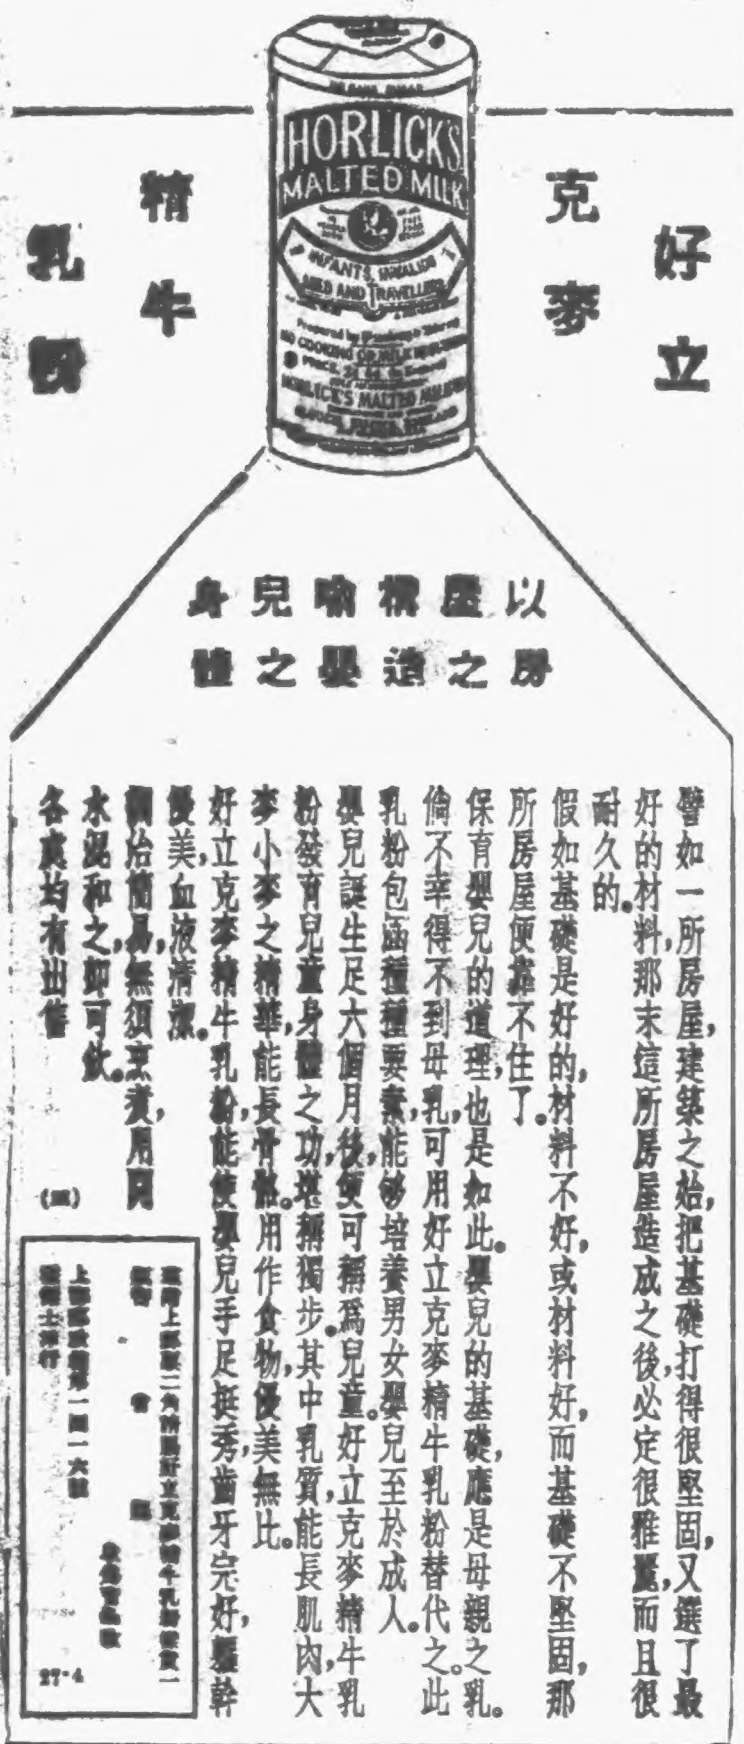 好立
克麥
精牛
乳粉
HORLICK'S
MALTED MILK
INFANTS, INVALIDS
AGED AND TRAVELLERS
HORLICK'S MALTED MILK
以房
屋之
構造
喻嬰
兒之
身體
譬如一所房屋,建築之始,把基礎打得很堅固,又選了最
好的材料,那末這所房屋造成之後,必定很雅麗,而且很
耐久的。
假如基礎是好的,材料不好,或材料好,而基礎不堅固,那
所房屋便靠不住了。
保育嬰兒的道理,也是如此。嬰兒的基礎,應是母親之乳。
倘不幸得不到母乳,可用好立克麥精牛乳粉替代之。此
乳粉包涵種種要素,能够培養男女嬰兒至於成人。
嬰兒誕生足六個月後,便可稱爲兒童。好立克麥精牛乳
粉發育兒童身體之功,堪稱獨步。其中乳質,能長肌肉,大
麥小麥之精華,能長骨骼。用作食物,優美無比。
好立克麥精牛乳粉,能使嬰兒手足挺秀,齒牙完好,軀幹
優美,血液清潔。
調治簡易,無須烹煮,用開
水混和之,卽可飲。
各處均有出售
27-4